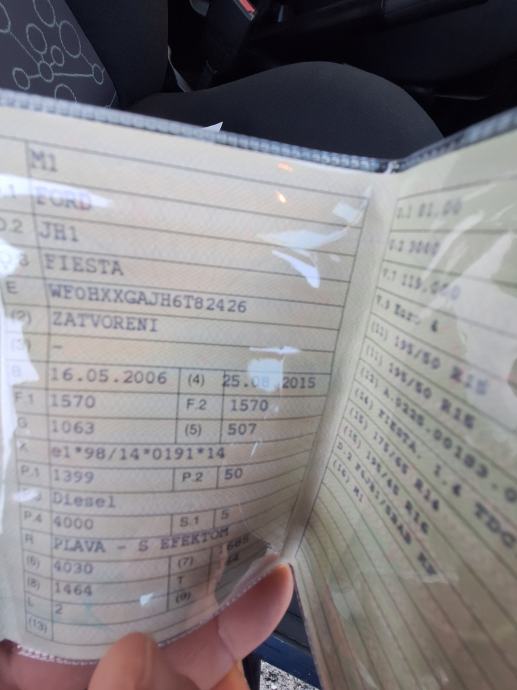 M1
.1 FORD
D.2 JH1
D.3 FIESTA
E WF0HXXGAJH6T82426
(2) ZATVORENI
(3) -
B 16.05.2006 (4) 25.08.2015
F.1 1570 F.2 1570
G 1063 (5) 507
K e1*98/14*0191*14
P.1 1399 P.2 50
Diesel
P.4 4000 S.1 5
R PLAVA - S EFEKTOM
(6) 4030 (7)
(8) 1464 T
L 2 (9)
(13)
U.1 81.00
U.2 3000
V.7 119.000
V.9 Euro 4
(11) 195/50 R15
(11) 195/50 R15
(14) FIESTA, 1.4 TDC
(15) 175/65 R14
(15) 195/45 R16
(16) M1